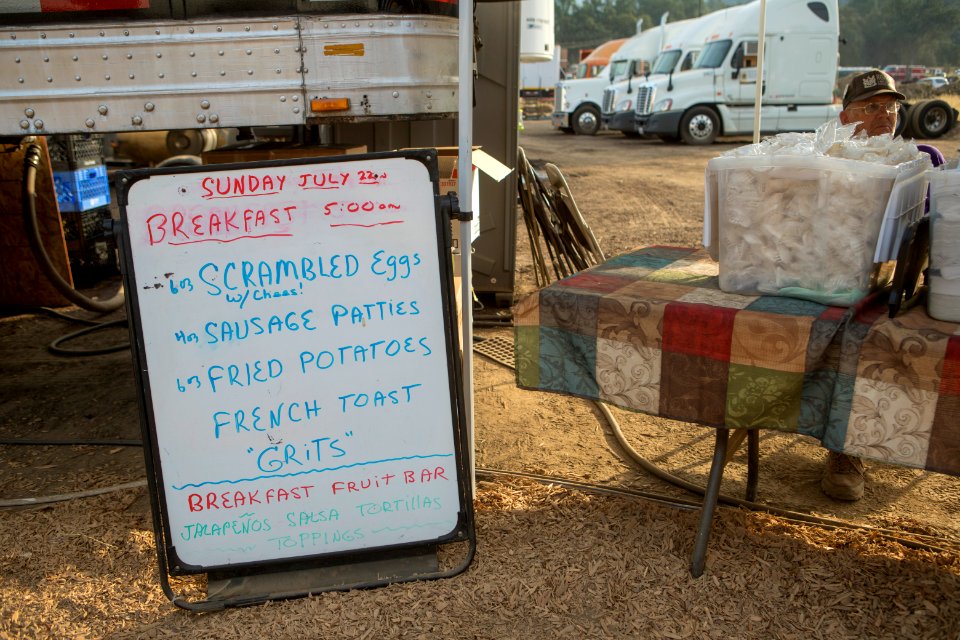 SUNDAY JULY 22ND
BREAKFAST 5:00am
6oz SCRAMBLED Eggs
w/ Chees!
4oz SAUSAGE PATTIES
6oz FRIED POTATOES
FRENCH TOAST
"GRiTS"
BREAKFAST FRUIT BAR
JALAPEÑOS SALSA TORTILLAS
TOPPINGS